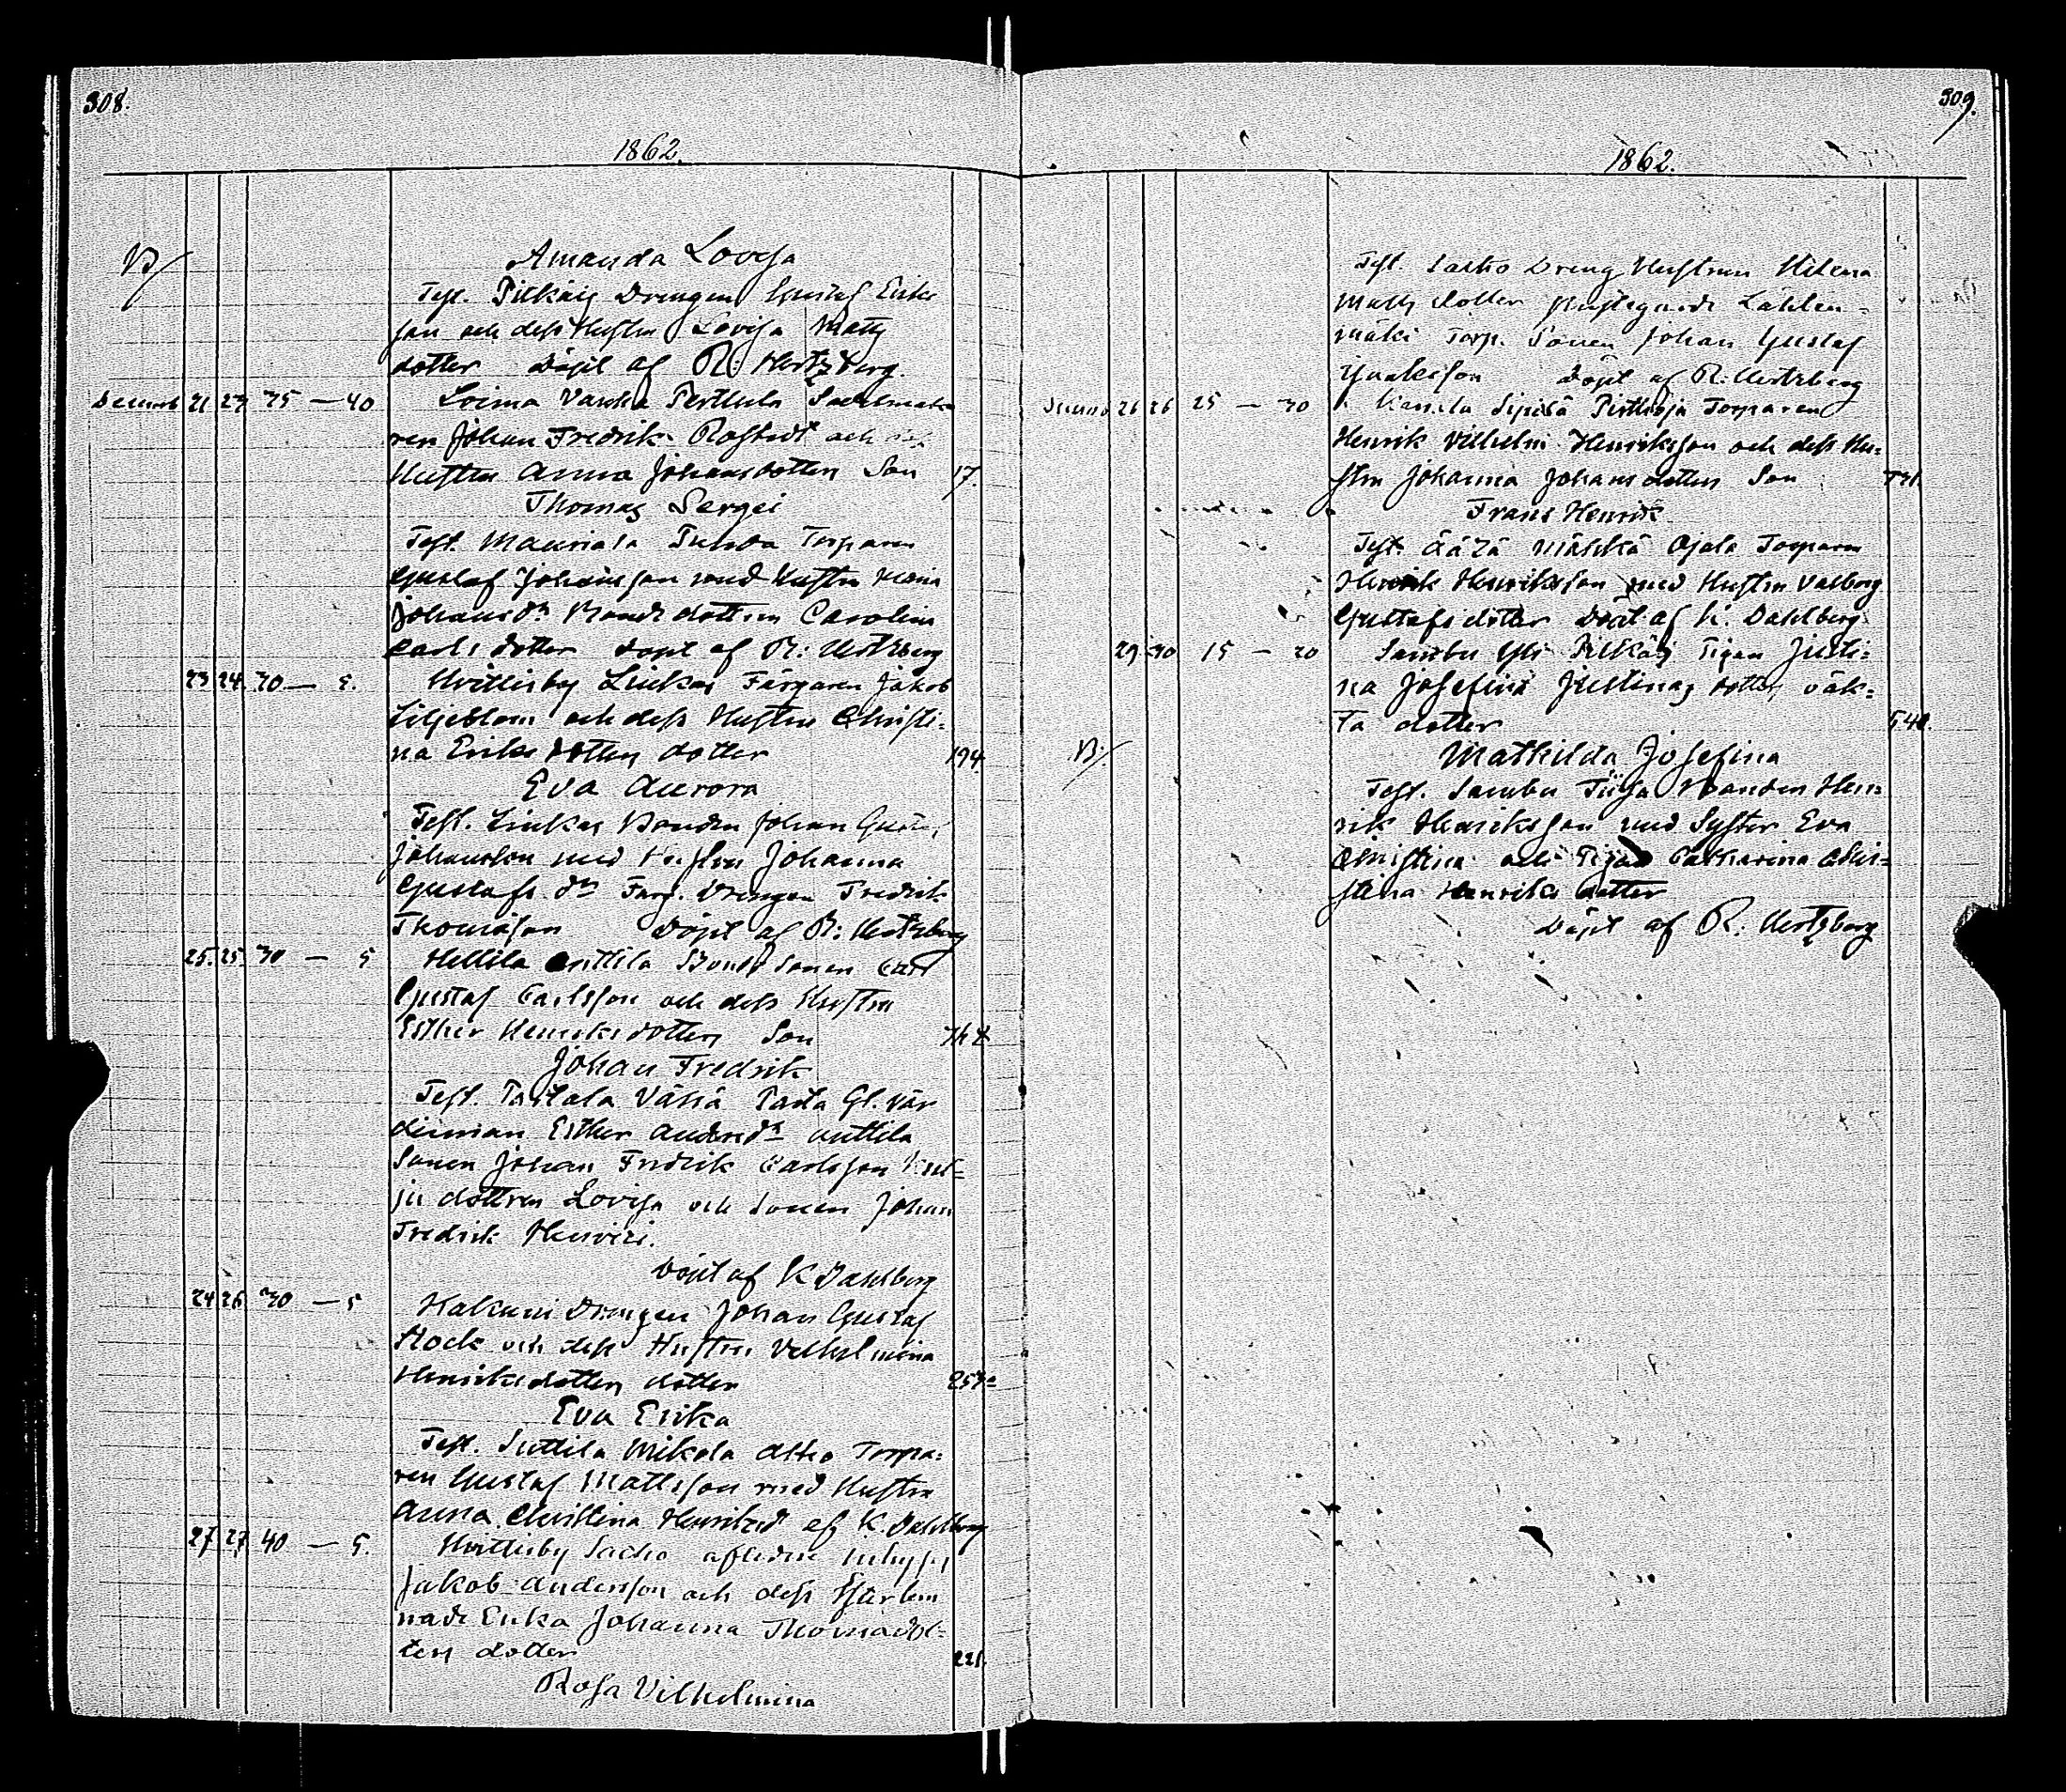 308.
1862.
B/
Amanda Lovisa
Test. Pilkäis Drengen Gustaf Eriks
son och dess Hustru Lovisa Matts
dotter Döpt af R: Hertzberg.
Decemb 21 27 35 — 40 Loima Vanha Perttula Sadelmaka
ren Johan Fredrik Rostedt och
Hustru Anna Johansdotters Son 17.
Thomas Sergei
Test. Mauriala Torparen
Gustaf Johansson med Hustru Maria
Johansdr Bonde dottren Carolina
Carls dotter döpt af R: Hertzberg
23 24 30 — 5. Hvittisby Liukas Färgaren Jakob
Liljeblom och dess Hustru Christi-
na Eriks dotters dotter 194.
Eva Aurora
Test. Liukas Bonden Johan Gustaf
Johansson med Hustru Johanna
Gustafs dr Färg. Drengen Fredrik
Thomasson Döpt af R: Hertzberg
25. 25. 30 — 5 Hellilä Anttila Bonde Sonen Carl
Gustaf Carlsson och dess Hustru
Esther Henriks dotters Son
Johan Fredrik
Test.
Esther Andersdr Anttila
Sonen Johan Fredrik Carlsson
dottren Lovisa och Sonen Johan
Fredrik Henrici.
Döpt af K Dahlberg
24 26 30 — 5 Hakuni Drengen Johan Gustaf
Flock och dess Hustru Vilhelmina
Henriksdotters dotter
Eva Erika
Test. Suttila Mikola Torpa-
ren Gustaf Mattsson med Hustru
Anna Christina Henriksd af K. Dahlberg
27 27 40 — 5. Hvittisby Sacho aflidne Inhyses
Jakob Andersson och dess Efterlem
nade Enka Johanna Thomædot-
ters dotter 221.
Rosa Vilhelmina
309.
1862.
Test. Sacho Dreng Hustrun Helena
Matts dotter
mäki Torp. Sonen Johan Gustaf
Isaksson Döpt af R: Hertzberg
26 26 25 — 30 Torparen
Henrik Vilhelm Henriksson och dess Hu-
stru Johanna Johansdotters Son
Frans Henrik
Test. Ojala Torparen
Henrik Henriksson med Hustru Valborg
Gustafs dotter Döpt af K. Dahlberg
29 30 15 — 20 Sambu Yli Pilkäs Pigan Justi-
na Josefina Justinas dotters oäk-
ta dotter
B:/
Mathilda Josefina
Test. Sambu Bonden Hen-
rik Henriksson med Syster Eva
Christina och Pigan Catharina Chri-
stina Henriks dotter
Döpt af R: Hertzberg